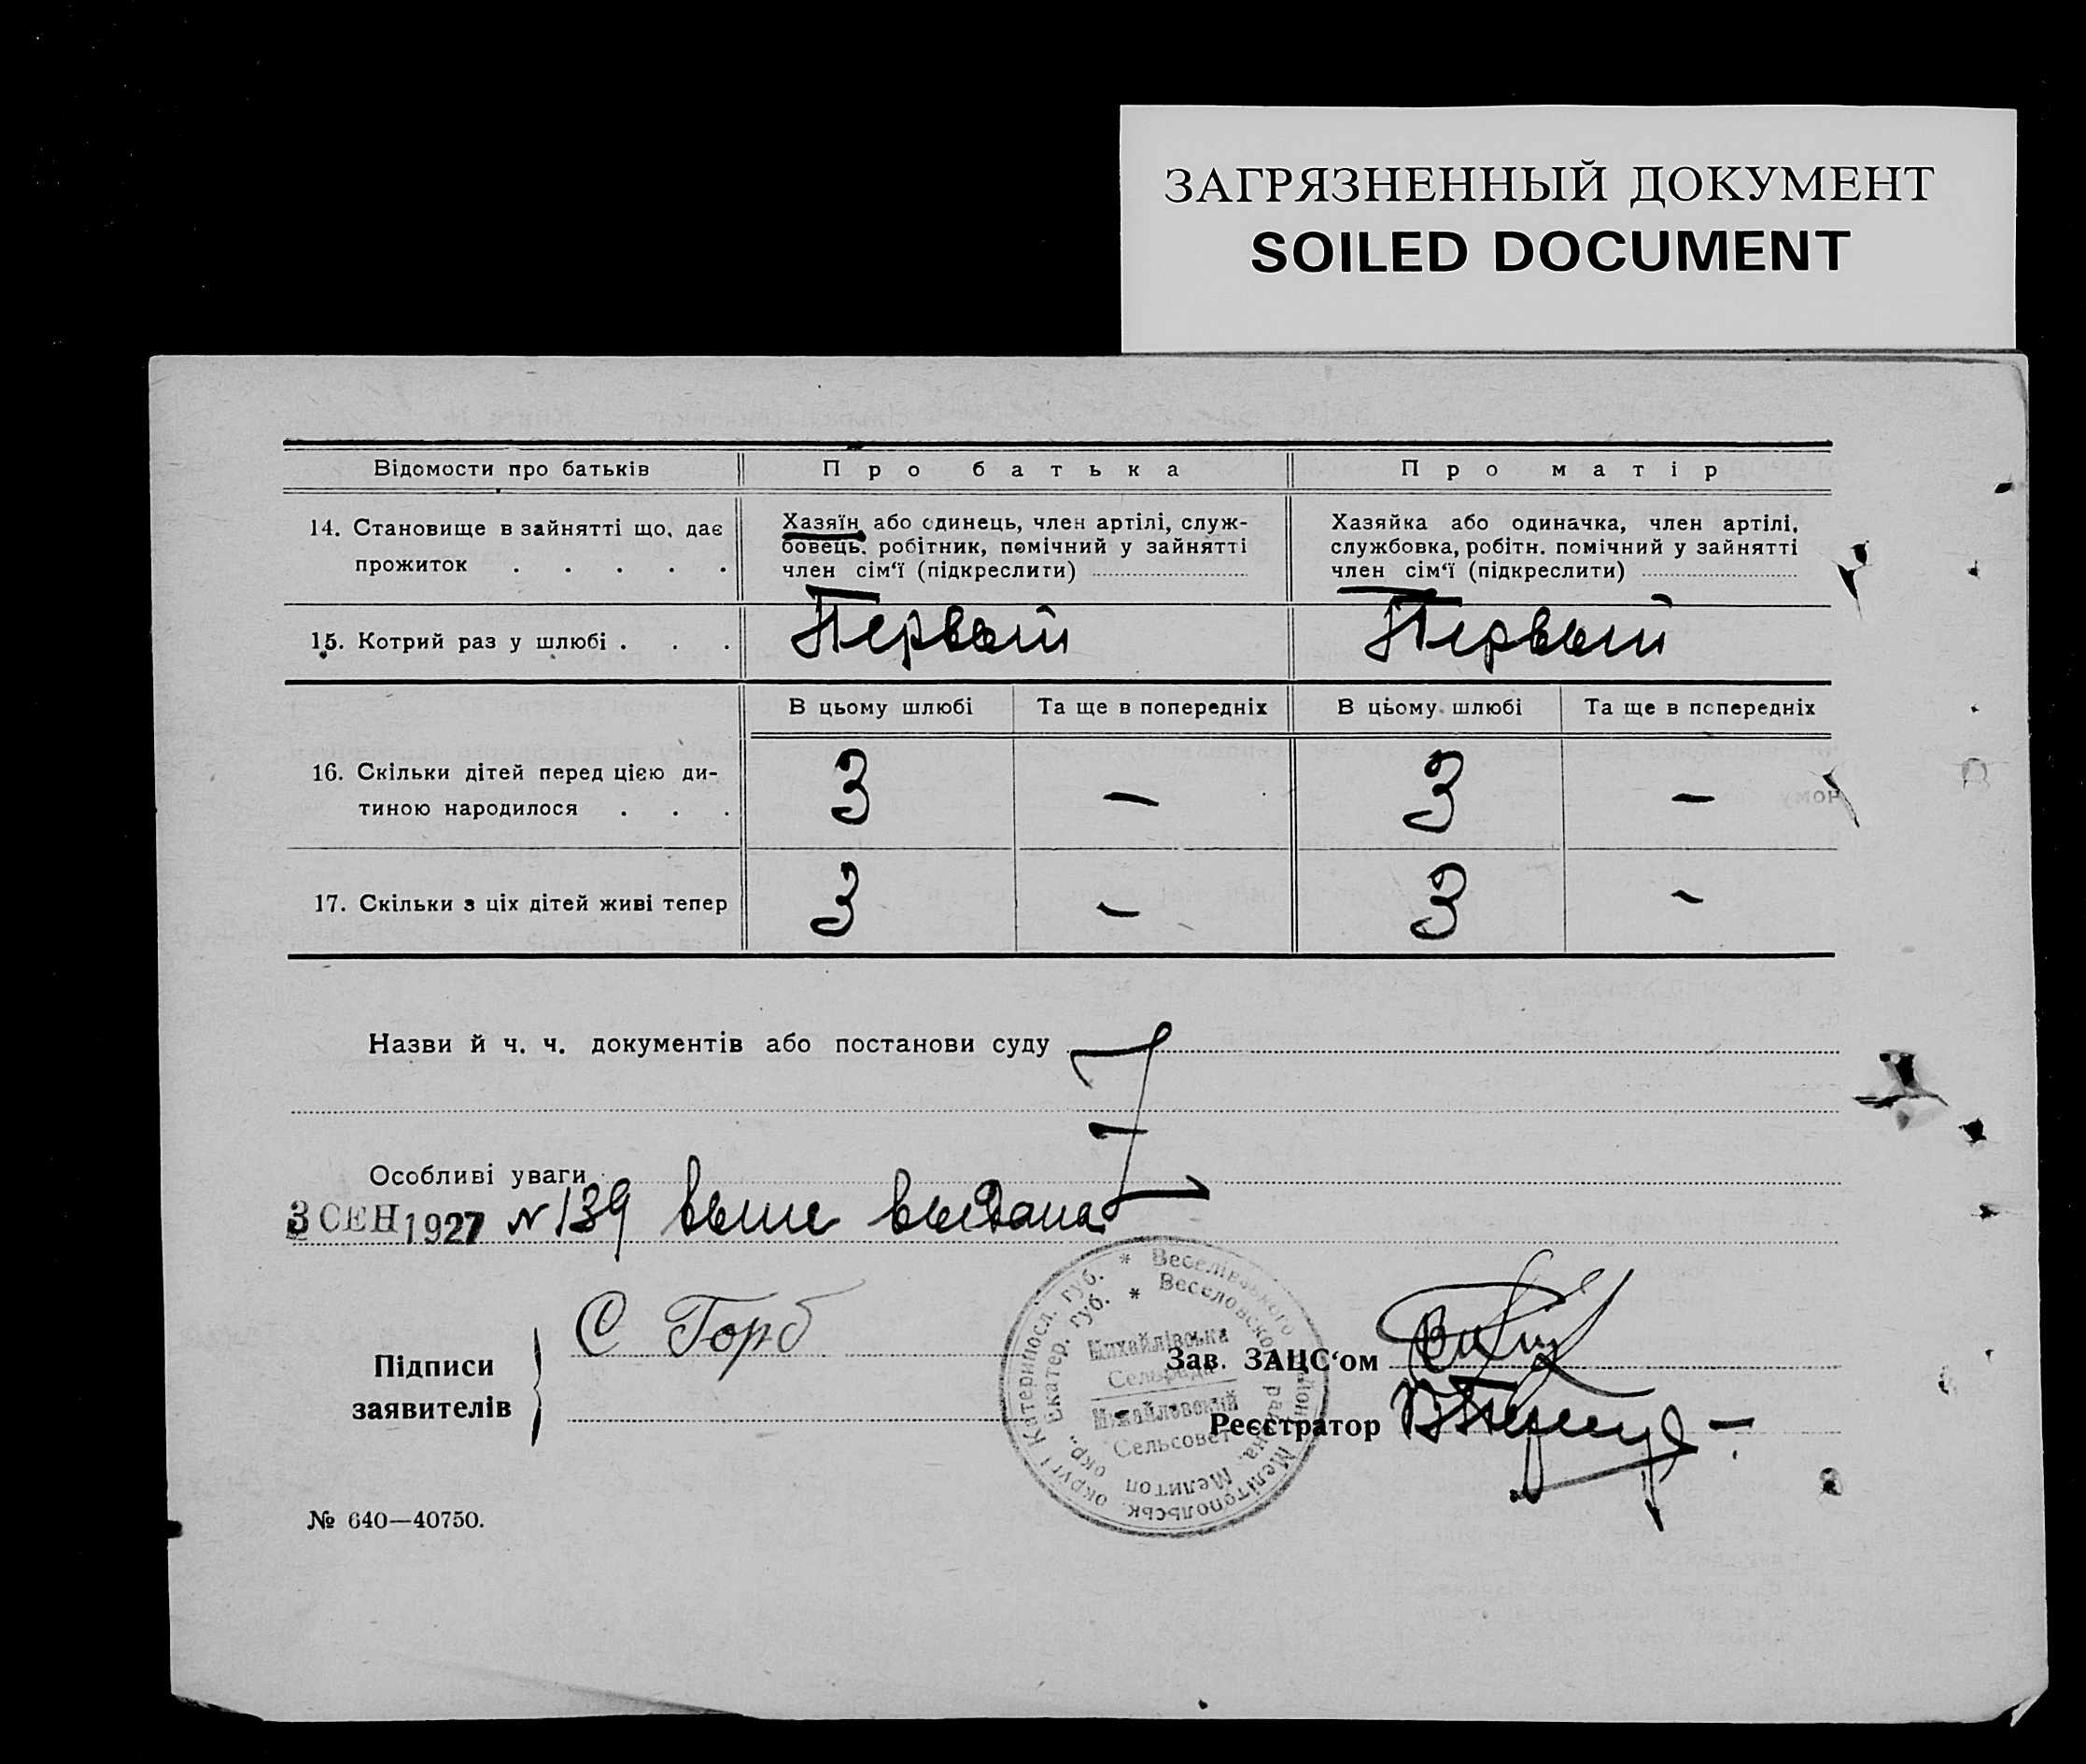 ЗАГРЯЗНЕННЫЙ ДОКУМЕНТ
SOILED DOCUMENT
Відомости про батьків
Про батька
Про матір
14. Становище в зайнятті що, дає
прожиток . . . . .
Хазяїн або одинець, член артілі, служ-
бовець, робітник, помічний у зайнятті
член сім‘ї (підкреслити)
Хазяйка або одиначка, член артілі,
службовка, робітн. помічний у зайнятті
член сім‘ї (підкреслити)
15. Котрий раз у шлюбі . . .
Первый
Первый
В цьому шлюбі
Та ще в попередніх
В цьому шлюбі
Та ще в попередніх
16. Скільки дітей перед цією ди-
тиною народилося . . .
3
—
3
—
17. Скільки з ціх дітей живі тепер
3
—
3
-
Назви й ч. ч. документів або постанови суду
Особливі уваги
3 СЕН 1927 № 139 выпис выдана
Підписи
заявителів
С Горб
Веселівського району Мелітопольськ. округи Катериносл. губ. *
Веселовского района, Мелитоп. окр., Екатер. губ. *
Михайлівська
Сельрада
Михайловский
Сельсовет
Зав. ЗАЦС‘ом
Реєстратор
№ 640—40750.